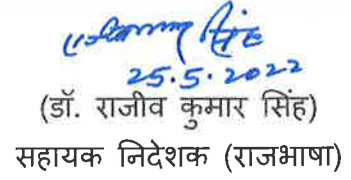 25.5.2022
(डॉ. राजीव कुमार सिंह)
सहायक निदेशक (राजभाषा)